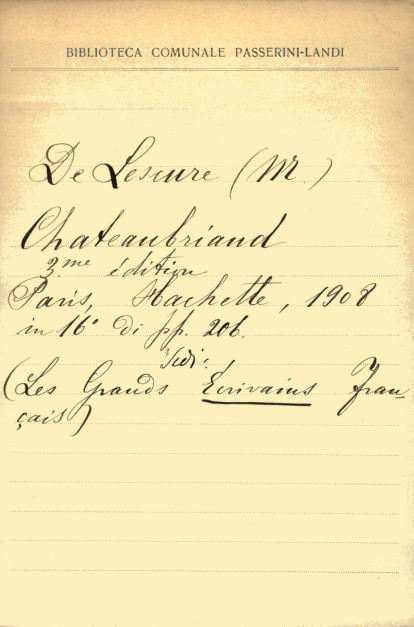 BIBLIOTECA COMUNALE PASSERINI-LANDI
De Lescure (M.)
Chateaubriand
3.me édition
Paris, Hachette, 1908
in 16° di pp. 206.
Vedi:
(Les Grands Écrivains Fran-
çais)